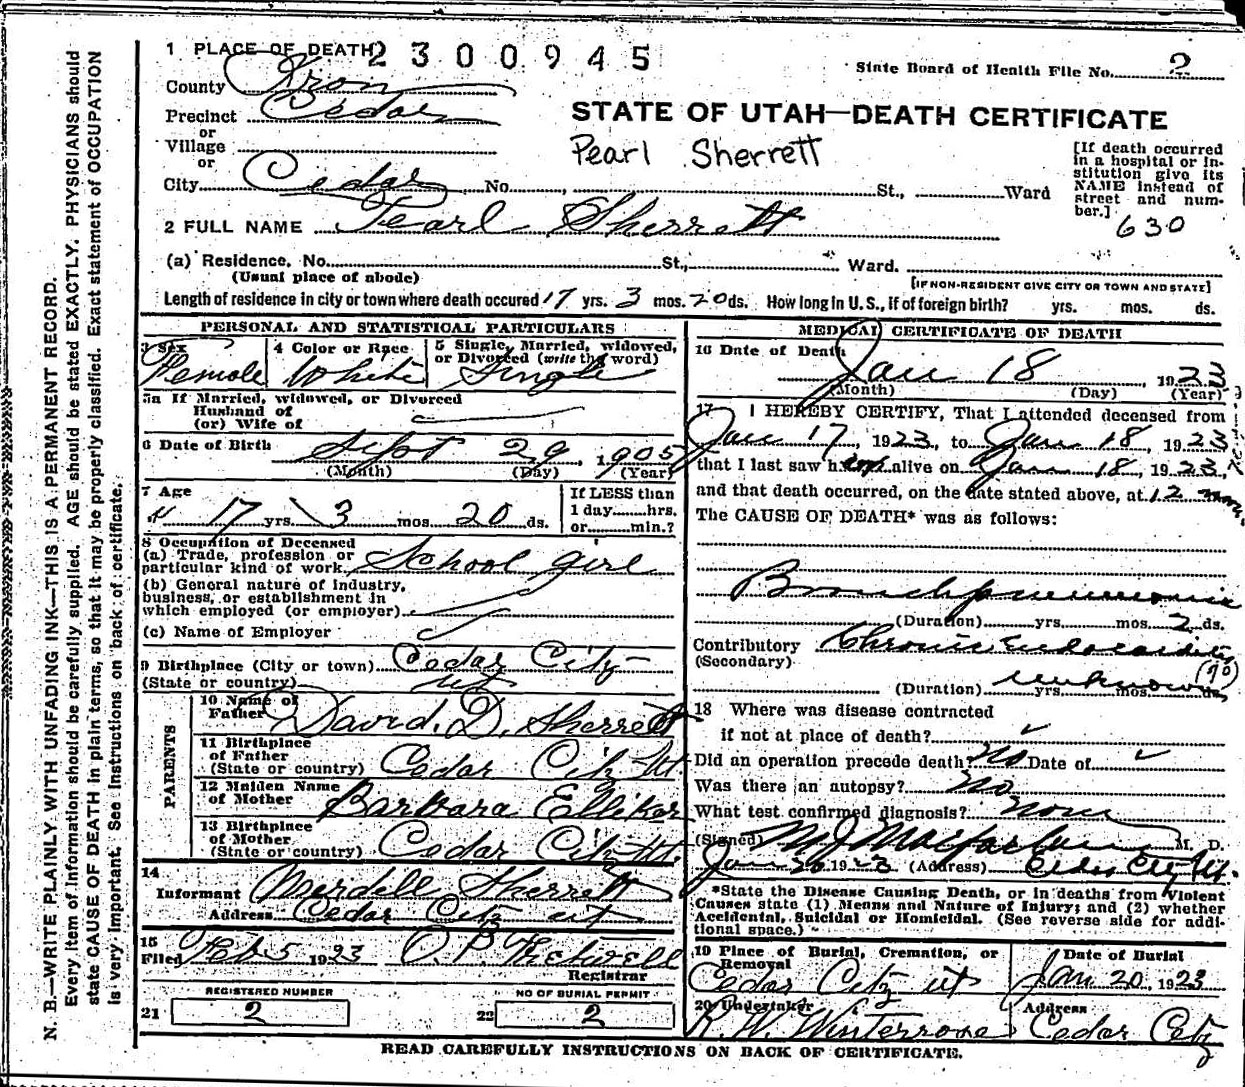 1 PLACE OF DEATH 2300945
State Board of Health File No. 2
County Iron
STATE OF UTAH—DEATH CERTIFICATE
Precinct Cedar
or
Village
or
Pearl Sherrett
[If death occurred in a hospital or institution give its NAME instead of street and number.]
630
City Cedar, No. , St., Ward
2 FULL NAME Pearl Sherrett
(a) Residence. No. St., Ward.
(Usual place of abode)
[IF NON-RESIDENT GIVE CITY OR TOWN AND STATE]
Length of residence in city or town where death occured 17 yrs. 3 mos. 20 ds. How long in U.S., if of foreign birth? yrs. mos. ds.
PERSONAL AND STATISTICAL PARTICULARS
3 Sex Female
4 Color or Race White
5 Single, Married, widowed, or Divorced (write the word) Single
5a If Married, widowed, or Divorced
Husband of
(or) Wife of
6 Date of Birth Sept 29, 1905
(Month) (Day) (Year)
7 Age
17 yrs. 3 mos. 20 ds.
If LESS than
1 day hrs.
or min.?
8 Occupation of Deceased
(a) Trade, profession or
particular kind of work School girl
(b) General nature of industry,
business, or establishment in
which employed (or employer)
(c) Name of Employer
9 Birthplace (City or town) Cedar City
(State or country) ut
PARENTS
10 Name of
Father David. D. Sherrett
11 Birthplace
of Father
(State or country) Cedar City Ut
12 Maiden Name
of Mother Barbara Elliker
13 Birthplace
of Mother
(State or country) Cedar City Ut.
14
Informant Merdell Sherrett
Address Cedar City ut
15
Filed Feb 5 1923
Registrar
REGISTERED NUMBER
21 2
NO OF BURIAL PERMIT
22 2
MEDICAL CERTIFICATE OF DEATH
16 Date of Death
Jan 18, 1923
(Month) (Day) (Year)
17 I HEREBY CERTIFY, That I attended deceased from
Jan 17, 1923, to Jan 18, 1923
that I last saw her alive on Jan 18, 1923,
and that death occurred, on the date stated above, at 12 m.
The CAUSE OF DEATH* was as follows:
Bronchpneumonia
(Duration) yrs. mos. 2 ds.
Contributory Chronic Endocarditis
(Secondary)
(90)
(Duration) unknown yrs. mos. ds.
18 Where was disease contracted
if not at place of death?
Did an operation precede death? No Date of
Was there an autopsy? No
What test confirmed diagnosis? None
(Signed) M J Macfarlane M. D.
Jan 20 1923 (Address) Cedar City Ut.
*State the Disease Causing Death, or in deaths from Violent
Causes state (1) Means and Nature of Injury; and (2) whether
Accidental, Suicidal or Homicidal. (See reverse side for addi-
tional space.)
19 Place of Burial, Cremation, or
Removal
Cedar City ut
Date of Burial
Jan 20, 1923
20 Undertaker
R. W. Winterrose
Address
Cedar City
READ CAREFULLY INSTRUCTIONS ON BACK OF CERTIFICATE.
N. B.—WRITE PLAINLY WITH UNFADING INK—THIS IS A PERMANENT RECORD.
Every item of information should be carefully supplied. AGE should be stated EXACTLY. PHYSICIANS should
state CAUSE OF DEATH in plain terms, so that it may be properly classified. Exact statement of OCCUPATION
is very important. See instructions on back of certificate.